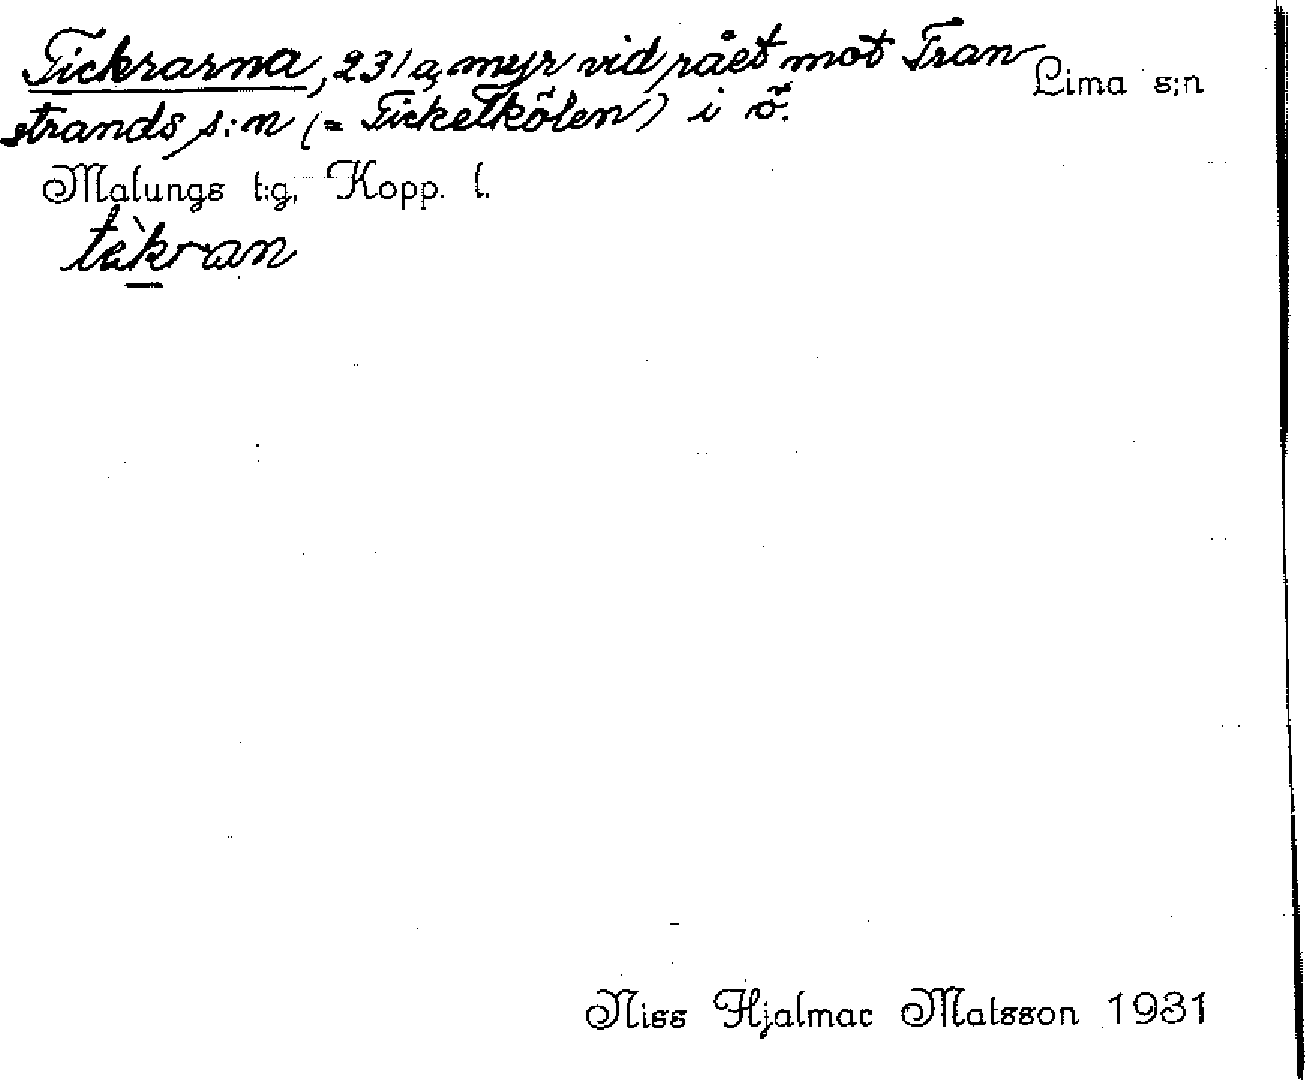 Tickrarna, 231 a, myr vid rået mot Tran-
Lima s:n
strands s:n (= Ticketkölen) i ö.
Malungs t:g, Kopp. l.
tèkran
Niss Hjalmar Matsson 1931